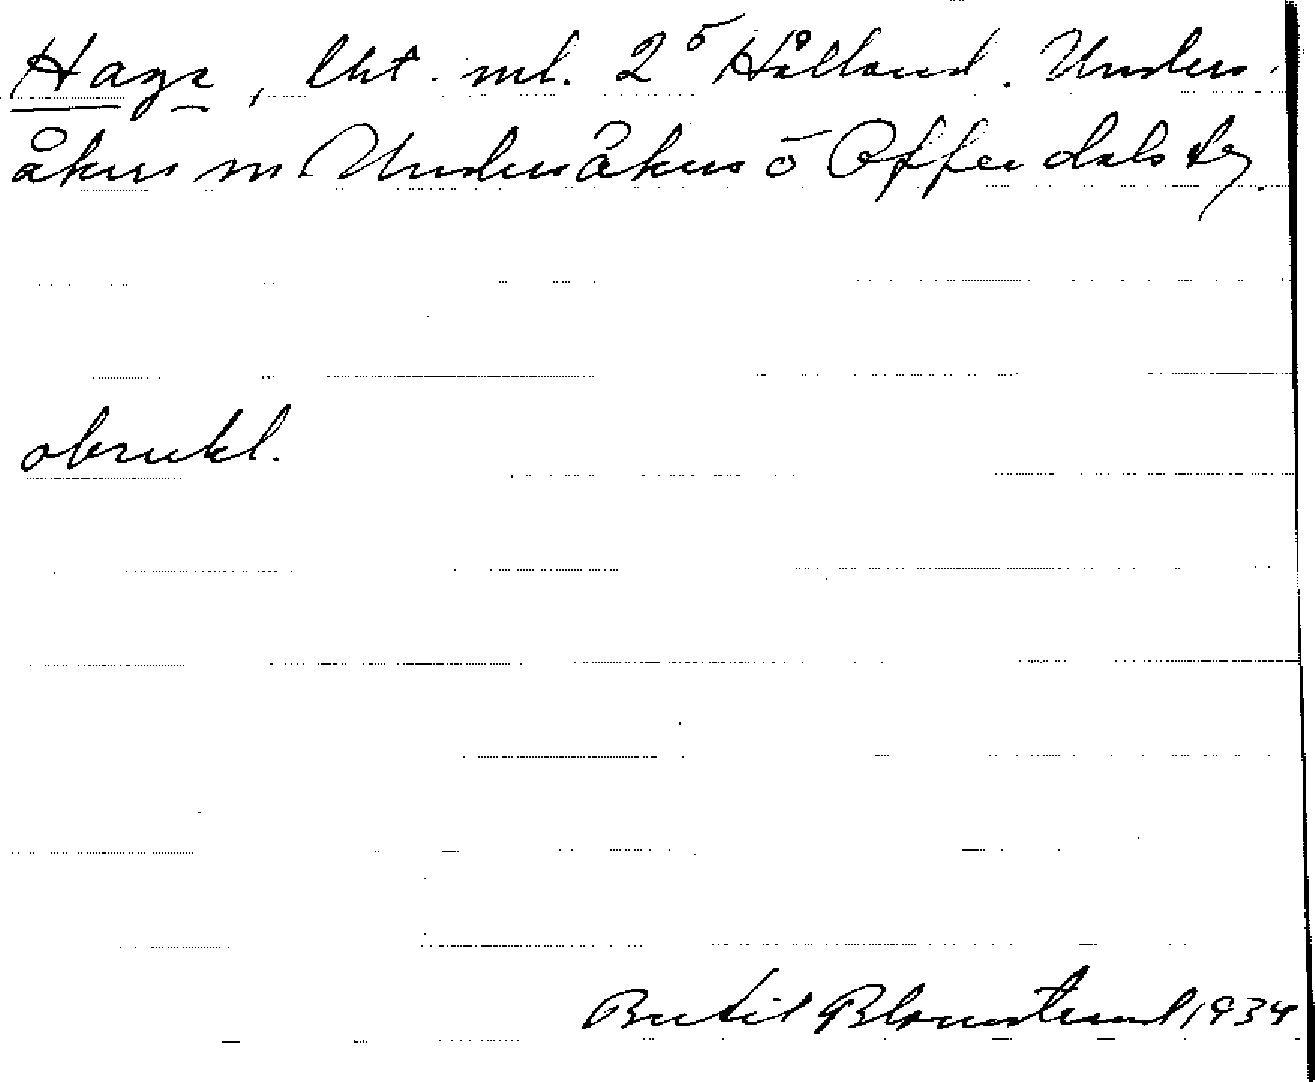 Haga, lht. ml. 2⁵ Hålland. Unders-
åkers sn. Undersåkers o Offerdals tg.
obrukl.
Bertil Blomstrand 1934